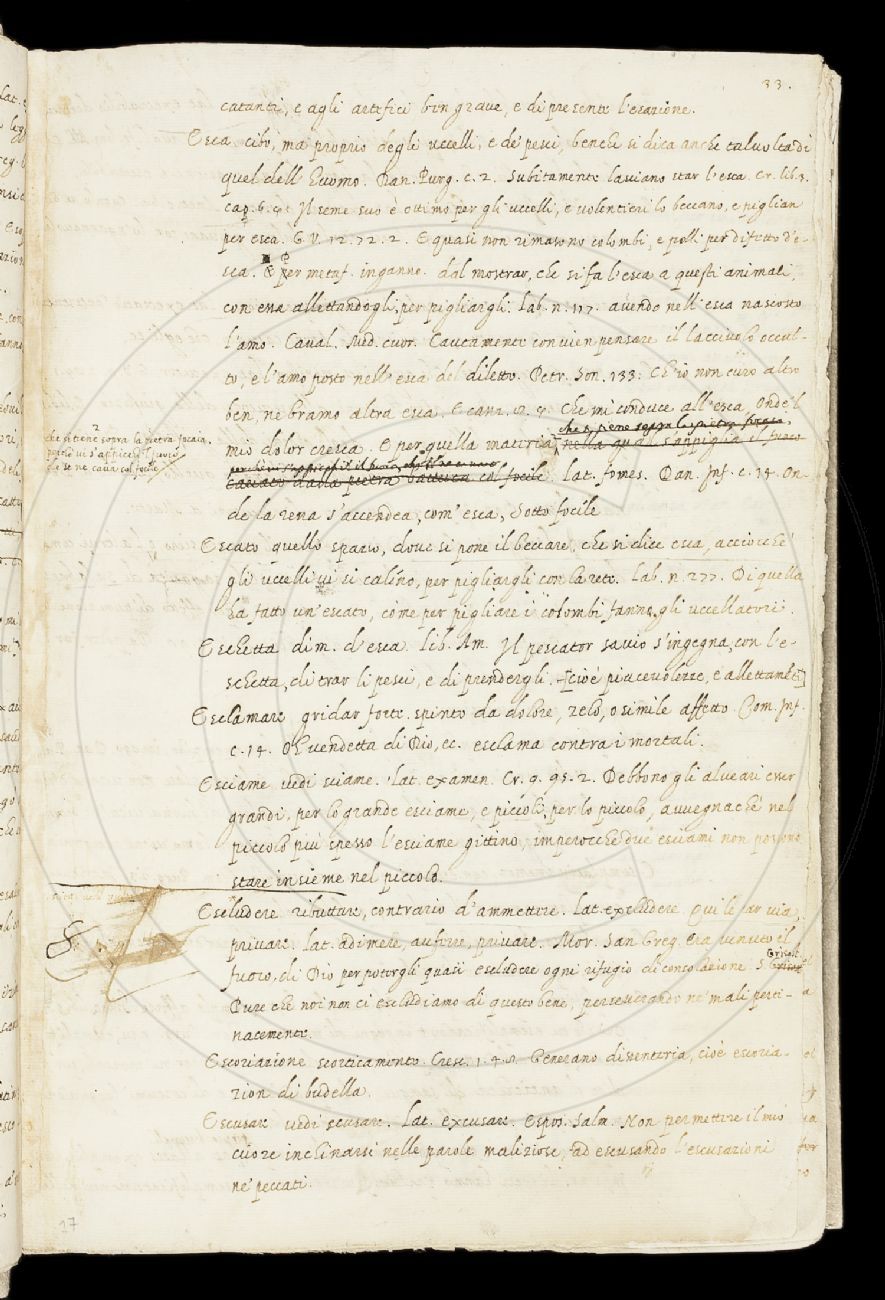 33.
catanti, e agli artefici ben grave, e di presente l'esazione.
Esca cibo, ma proprio degli uccelli, e de' pesci, benche si dica anche talvolta di
quel dell' huomo. Dan. Purg. c. 2. Subitamente lasciano star l'esca. Cr. lib. 3.
cap. 6. Il seme suo è ottimo per gli uccelli, e volentieri lo beccano, e piglian
per esca. G. V. 12. 72. 2. E quasi non rimasono colombi, e polli per difetto d'e-
sca. E per metaf. inganno. dal mostrar, che si fa l'esca a questi animali,
con essa allettandogli, per pigliargli. Lab. n. 117. avendo nell' esca nascosto
l'amo. Caval. Med. cuor. Cautamente convien pensare il lacciuolo occul-
to, e l'amo posto nell' esca del diletto. Petr. Son. 133. Ch'io non curo altro
ben, ne bramo altra esca. E canz. Che mi conduce all' esca, Onde 'l
che si tiene sopra la pietra focaia,
mio dolor cresca. E per quella materia, nella qual s'appiglia il fuoco
che si tiene sopra la pietra focaia,
perche vi s'appicchi 'l fuoco,
che se ne cava col focile
cavato dalla pietra battuta col focile. Lat. fomes. Dan. Inf. c. 14. On-
de la rena s'accendea, com' esca, Sotto focile
Escato quello spazio, dove si pone il beccare, che si dice esca, acciocche
gli uccelli vi si calino, per pigliargli con la rete. Lab. n. 277. Di quella
ha fatto un' escato, come per pigliare i colombi fanno gli uccellatori.
Eschetta dim. d'esca. Lib. Am. Il pescator savio s'ingegna, con l'e-
schetta, di trar li pesci, e di prendergli. [cioè piacevolezze, e allettamti]
Esclamare gridar forte. spinto da dolore, zelo, o simile affetto. Com. Inf.
c. 14. Oh vendetta di Dio, ec. esclama contra i mortali.
Esciame vedi sciame. Lat. examen. Cr. 9. 95. 2. Debbono gli alveari esser
grandi, per lo grande esciame, e piccioli, per lo piccolo, avvegnache nel
piccolo piu spesso l'esciame gittino, imperocche due esciami non possono
stare insieme nel piccolo.
Escludere ributtare, contrario d'ammettere. Lat. excludere. Qui le far via,
privare. Lat. adimere, auferre, privare. Mor. San Greg. Era venuto il
fuoco di Dio per potergli quasi escludere ogni rifugio di consolazione. S. Grisost.
Pure che noi non ci escludiamo di questo bene, perseverando ne' mali perti-
nacemente.
Escoriazione scorticamento. Cresc. 1. 4. 8. Generano dissenteria, cioè escoria-
zion di budella.
Escusare vedi scusare. Lat. excusare. Espos. Salm. Non permettere il mio
cuore inclinarsi nelle parole maliziose, ad escusando l'escusazioni
ne' peccati.
17